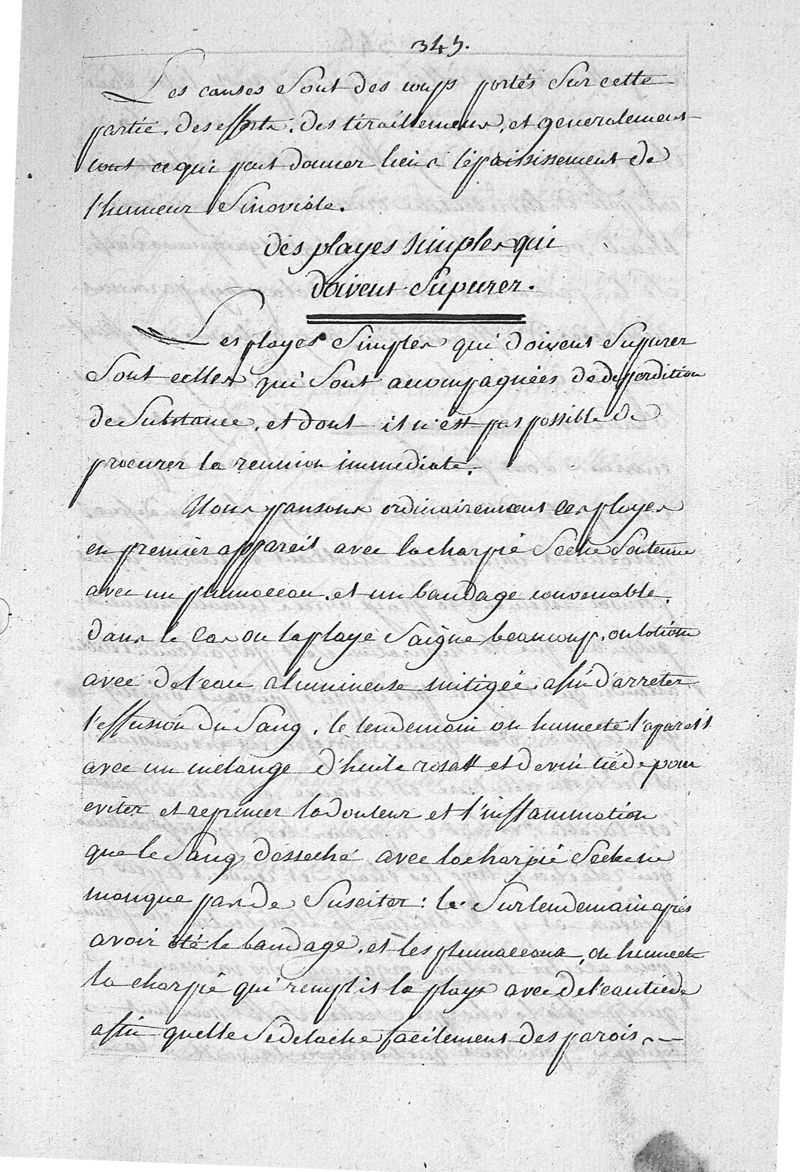 345.
Les causes Sont des coups portés Sur cette
partie, des efforts, des tiraillemens, et generalement
tout ce qui peut donner lieu a l'épaississement de
l'humeur Sinoviale.
des playes simples qui
doivent Supurer.
Les playes Simples qui doivent Supurer
Sont celles qui Sont accompagnées de deperdition
de Substance, et dont il n'est pas possible de
procurer la reunion immediate.
Nous pansons ordinairement ces playes
en premier appareil avec la charpie Séche Soutenue
avec un plumaceau, et un bandage convenable.
dans le Cas ou la playe Saigne beaucoup, on lotione
avec de l'eau alumineuse mitigée, afin d'arreter
l'effusion du Sang, le lendemain on humecte l'apareil
avec un mélange d'huile rosatt et de vin tiéde pour
eviter et reprimer la douleur et l'inflammation
que le Sang désseché avec la charpie Séche ne
manque pas de Susciter : le Surlendemain après
avoir oté le bandage, et les plumaceaux, on humecte
la charpie qui remplis la playe avec de l'eau tiede
affin quelle Se detache facilement des parois.